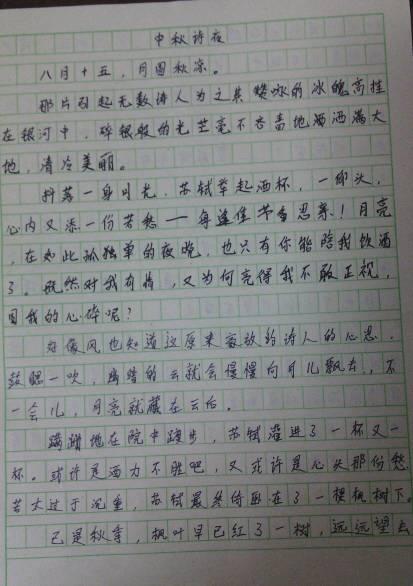 中秋诗夜
八月十五，月圆秋凉。
那片引起无数诗人为之共赞咏的冰魄高挂
在银河中，碎银般的光芒毫不吝啬地洒洒满大
地，清冷美丽。
抖落一身月光，苏轼举起酒杯，一仰头，
心内又添一份苦愁——每逢佳节多思亲！月亮
，在如此孤独单的夜晚，也只有你能陪我饮酒
了。既然对我有情，又为何亮得我不敢正视，
圆我的心碎呢？
好像风也知道这原来豪放的诗人的心思，
鼓腮一吹，的云就会慢慢向月儿飘去，不
一会儿，月亮就藏在云后。
蹒跚地在院中踱步，苏轼灌进了一杯又一
杯。或许是酒力不胜吧，又或许是心头那份愁
苦太过于沉重，苏轼最终倚卧在了一棵枫树下。
已是秋季，枫叶早已红了一树，远远望去